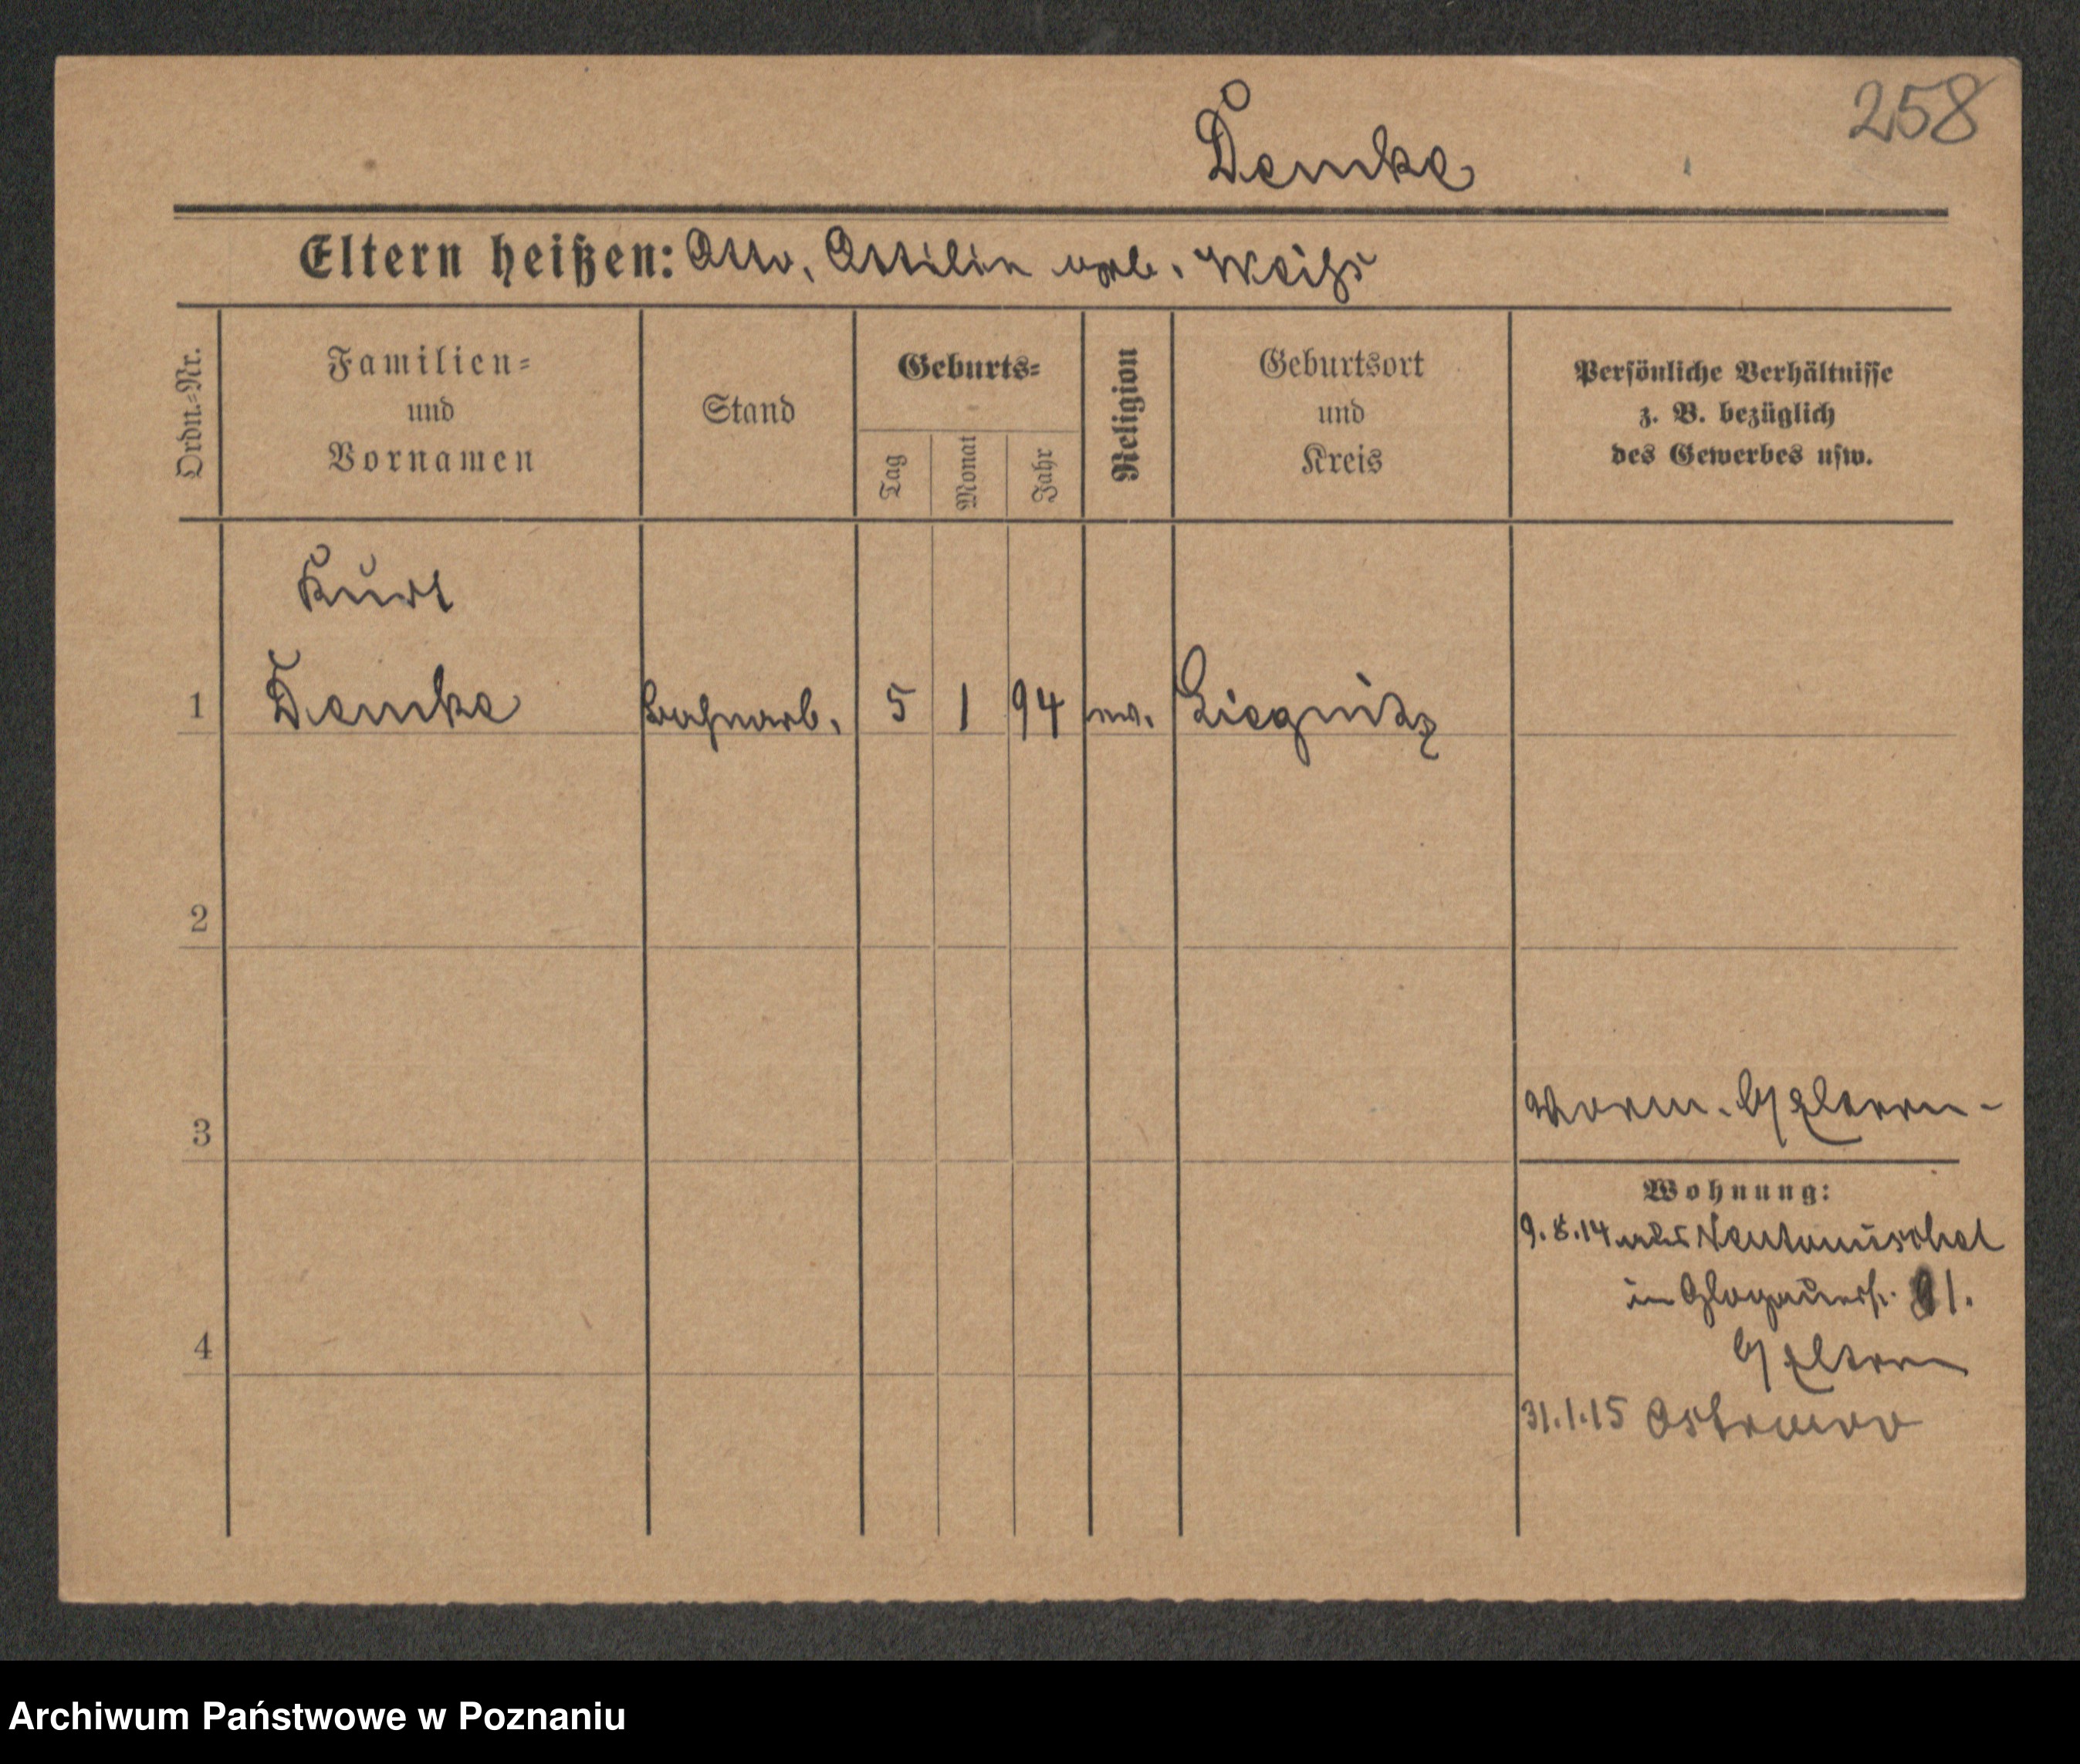 258
Demke
Eltern heißen: Otto, Ottilie geb. Weihs
Ordn.-Nr.
Familien-
und
Vornamen
Stand
Geburts-
Tag
Monat
Jahr
Religion
Geburtsort
und
Kreis
Persönliche Verhältnisse
z. B. bezüglich
des Gewerbes usw.
Kurt
1 Demke Bahnarb. 5 1 94 ev. Liegnitz
2
3
Eltern
Wohnung:
9.8.14 aus Neutomischel
in Glogauerstr. 91.
b/ Eltern
4
31.1.15 Ostrowo
Archiwum Państwowe w Poznaniu